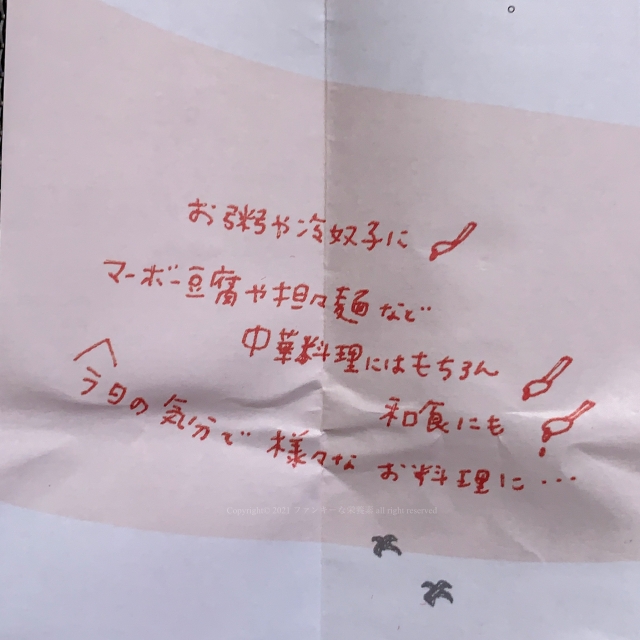 お粥や冷奴子に
マーボー豆腐や担々麺などで
中華料理にはもちろん
和食にも
今日の気分で様々なお料理に...
Copyright© 2021 ファンキーな栄養素 all rights reserved